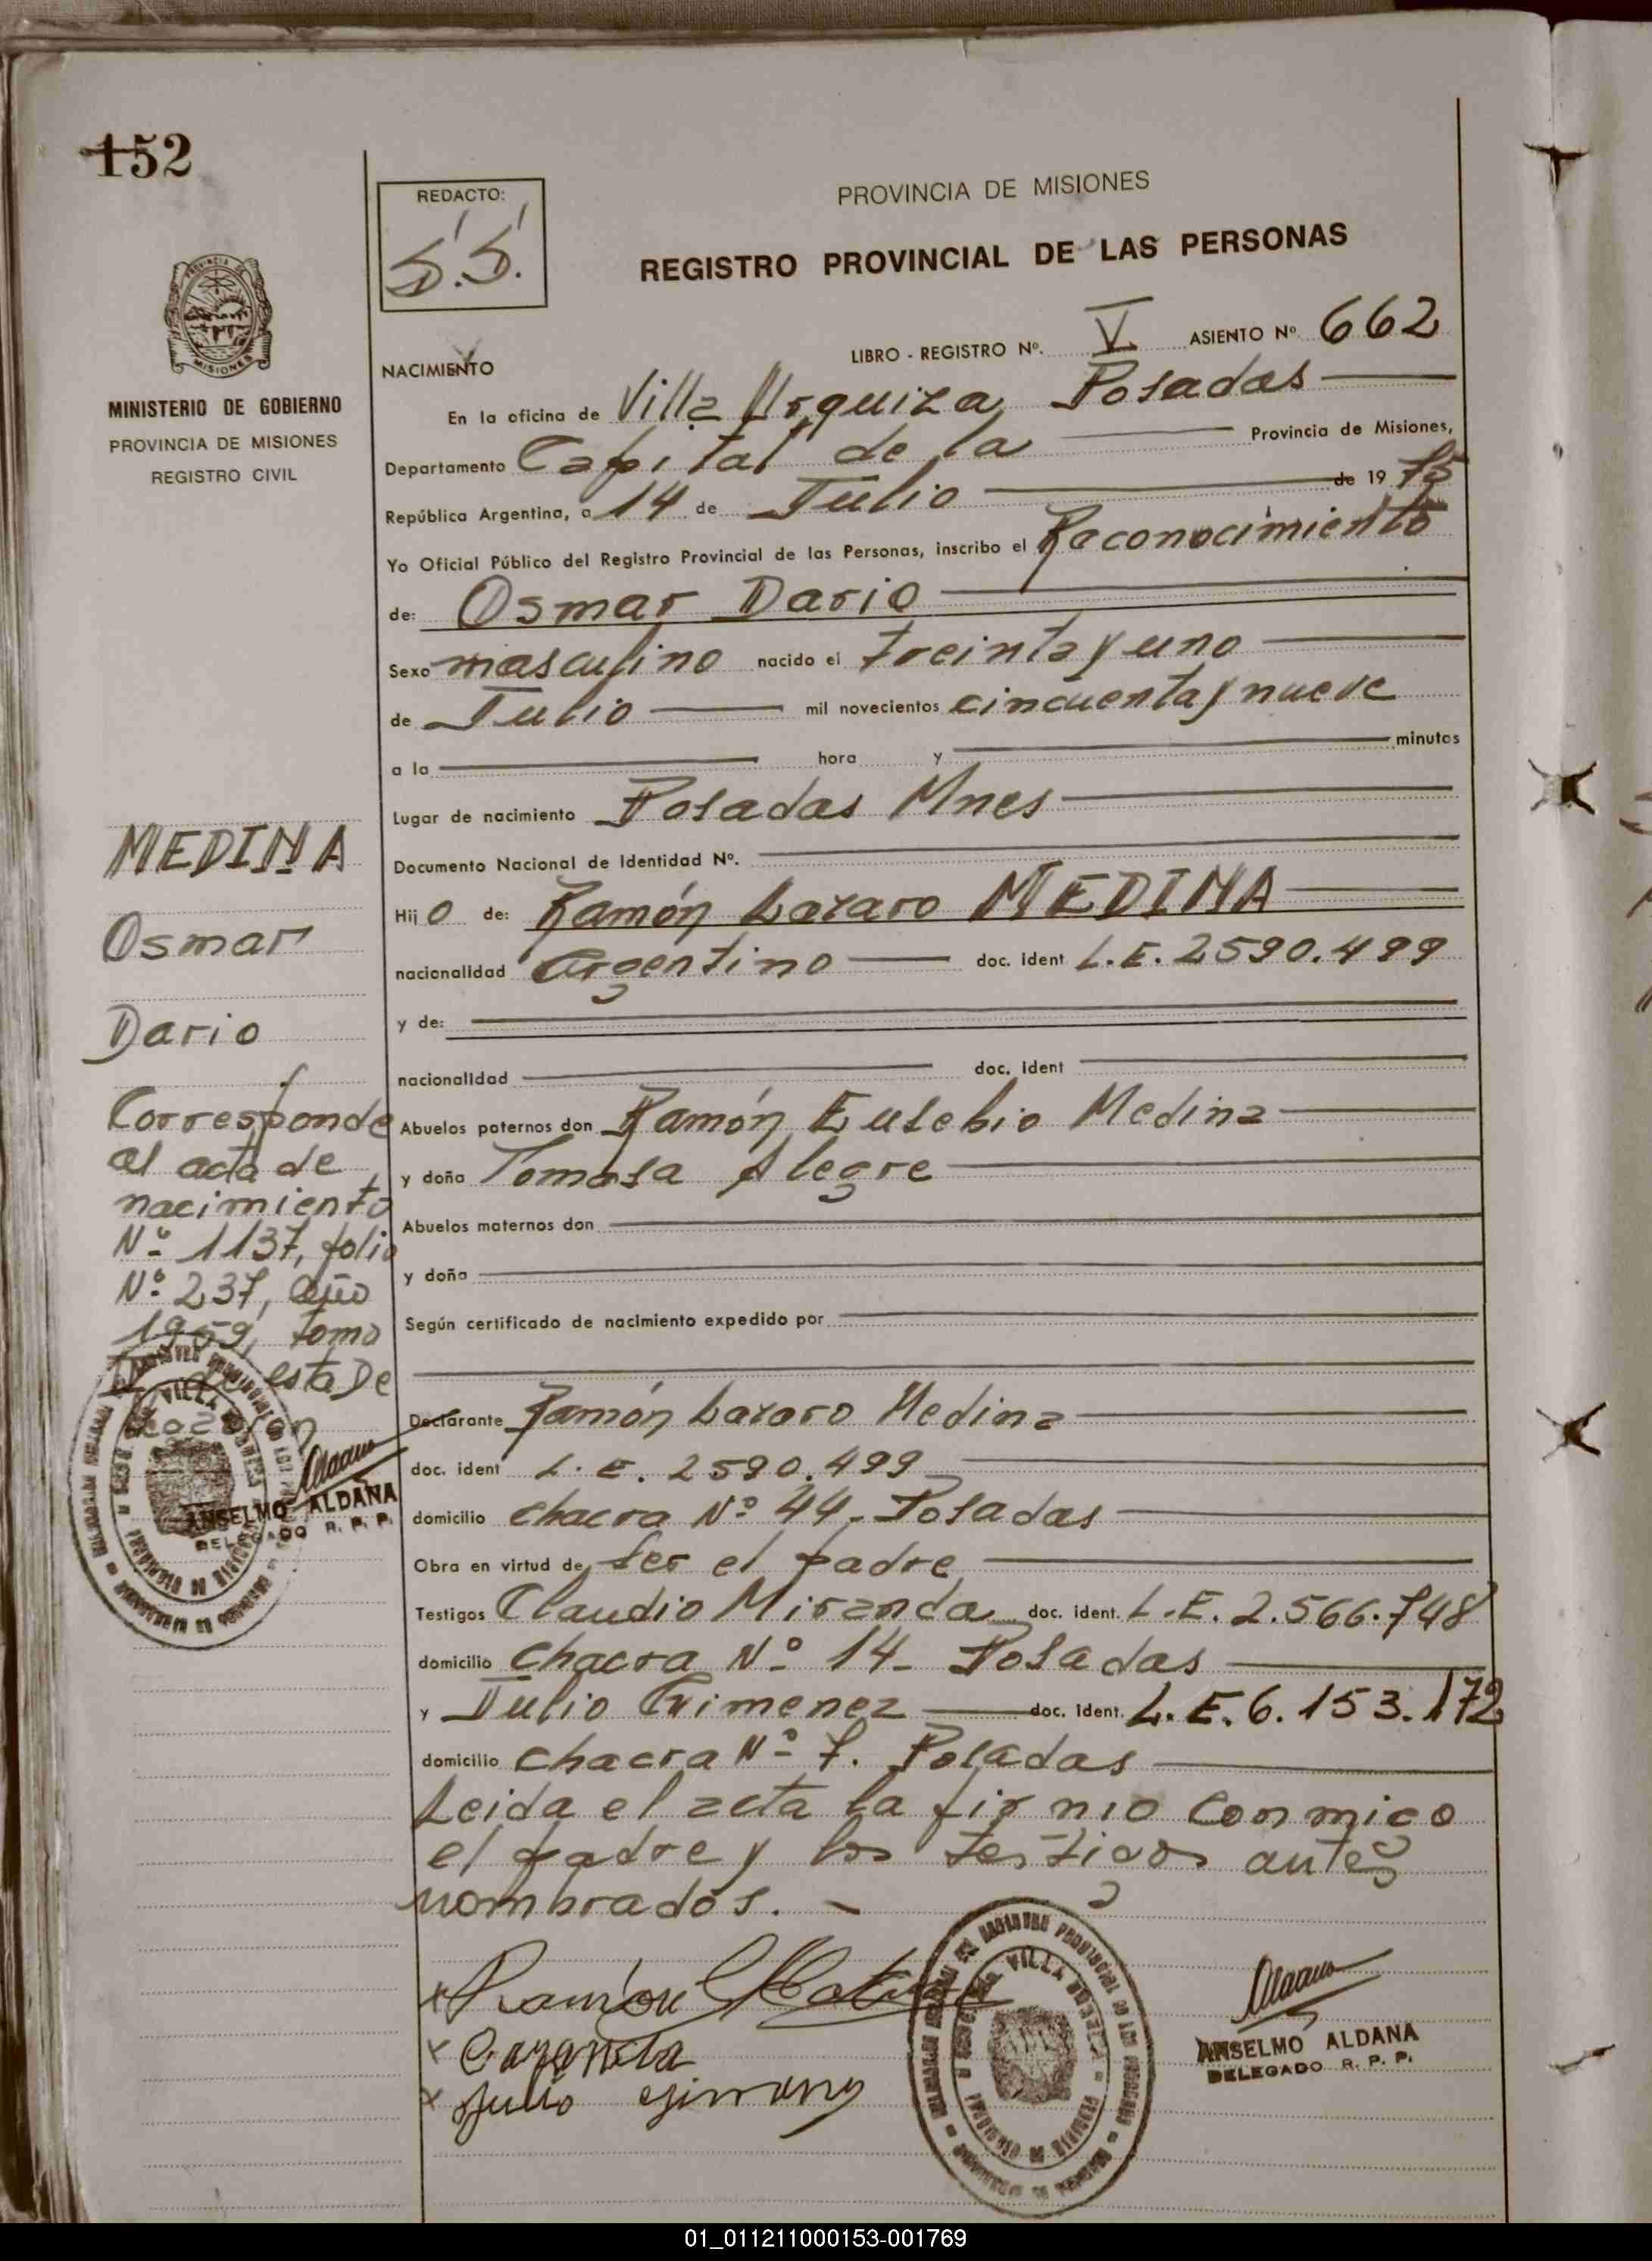 152
REDACTO:
S.S.
PROVINCIA DE MISIONES
REGISTRO PROVINCIAL DE LAS PERSONAS
PROVINCIA DE
MISIONES
MINISTERIO DE GOBIERNO
PROVINCIA DE MISIONES
REGISTRO CIVIL
LIBRO - REGISTRO Nº. V ASIENTO Nº. 662
NACIMIENTO
En la oficina de Villa Urquiza, Posadas
Departamento Capital de la Provincia de Misiones,
República Argentina, a 14 de Julio de 1975
Yo Oficial Público del Registro Provincial de las Personas, inscribo el Reconocimiento
de: Osmar Dario
Sexo masculino nacido el treinta y uno
de Julio mil novecientos cincuenta y nueve
a la hora y minutos
Lugar de nacimiento Posadas Mnes
Documento Nacional de Identidad Nº.
Hijo de: Ramón Lazaro MEDINA
nacionalidad Argentino doc. ident L.E. 2590.499
y de:
nacionalidad doc. ident
Abuelos paternos don Ramón Eusebio Medina
y doña Tomasa Alegre
Abuelos maternos don
y doña
Según certificado de nacimiento expedido por
Declarante Ramón Lazaro Medina
doc. ident L.E. 2590.499
domicilio chacra Nº 44. Posadas
Obra en virtud de ser el padre
Testigos Claudio Miranda doc. ident. L.E. 2.566.748
domicilio chacra Nº 14- Posadas
y Julio Gimenez doc. ident. L.E. 6.153.172
domicilio chacra Nº 7. Posadas
Leida el acta la firmo conmigo
el padre y los testigos antes
nombrados.-
MEDINA
Osmar
Dario
Corresponde
al acta de
nacimiento
Nº 1137, folio
Nº 237, año
1959, tomo
de esta De
VILLA
ANSELMO ALDANA
DELEGADO R. P. P.
x Ramón
x
x Julio
REGISTRO PROVINCIAL DE LAS PERSONAS
VILLA
ANSELMO ALDANA
DELEGADO R. P. P.
01_011211000153-001769